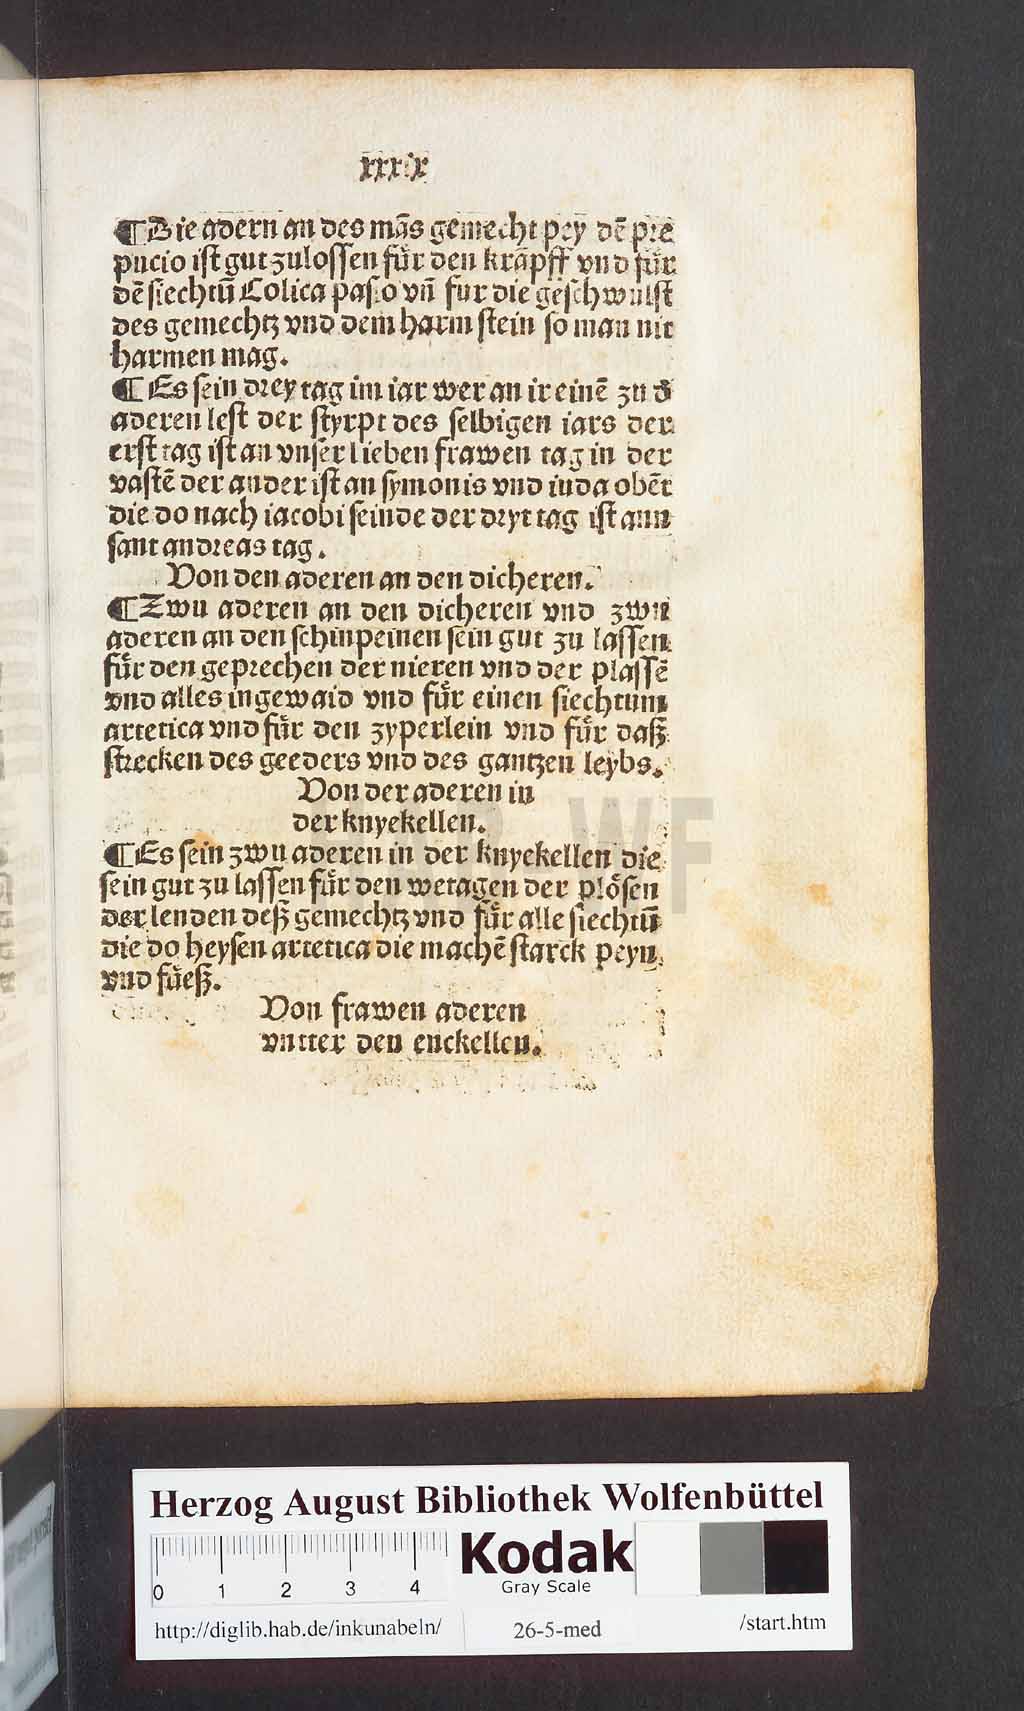 xxxix
¶Die adern an des mās gemecht pey dē pre
pucio ist gut zulossen fuͤr den krāpff vnd fuͤr
dē siechtū Colica pasio vn̄ fur die geschwulst
des gemechtz vnd dem harm stein so man nit
harmen mag.
¶Es sein drey tag im iar wer an ir einē zu d̕
aderen lest der styrpt des selbigen iars der
erst tag ist an vnser lieben frawen tag in der
vastē der ander ist an symonis vnd iuda obēt
die do nach iacobi seinde der dryt tag ist ann
sant andreas tag.
Von den aderen an den dicheren.
¶Zwu aderen an den dicheren vnd zwu
aderen an den schinpeinen sein gut zu lassen
fuͤr den geprechen der nieren vnd der plassē
vnd alles ingewaid vnd fuͤr einen siechtum
artetica vnd fuͤr den zyperlein vnd fuͤr daß
strecken des geeders vnd des gantzen leybs.
Von der aderen in
der knyekellen.
¶Es sein zwu aderen in der knyekellen die
sein gut zu lassen fuͤr den wetagen der ploͤsen
der lenden deß gemechtz vnd fuͤr alle siechtū
die do heysen artetica die machē starck peyn
vnd fuͤeß.
Von frawen aderen
vntter den enckellen.
Herzog August Bibliothek Wolfenbüttel
0 1 2 3 4
Kodak
Gray Scale
http://diglib.hab.de/inkunabeln/ 26-5-med /start.htm